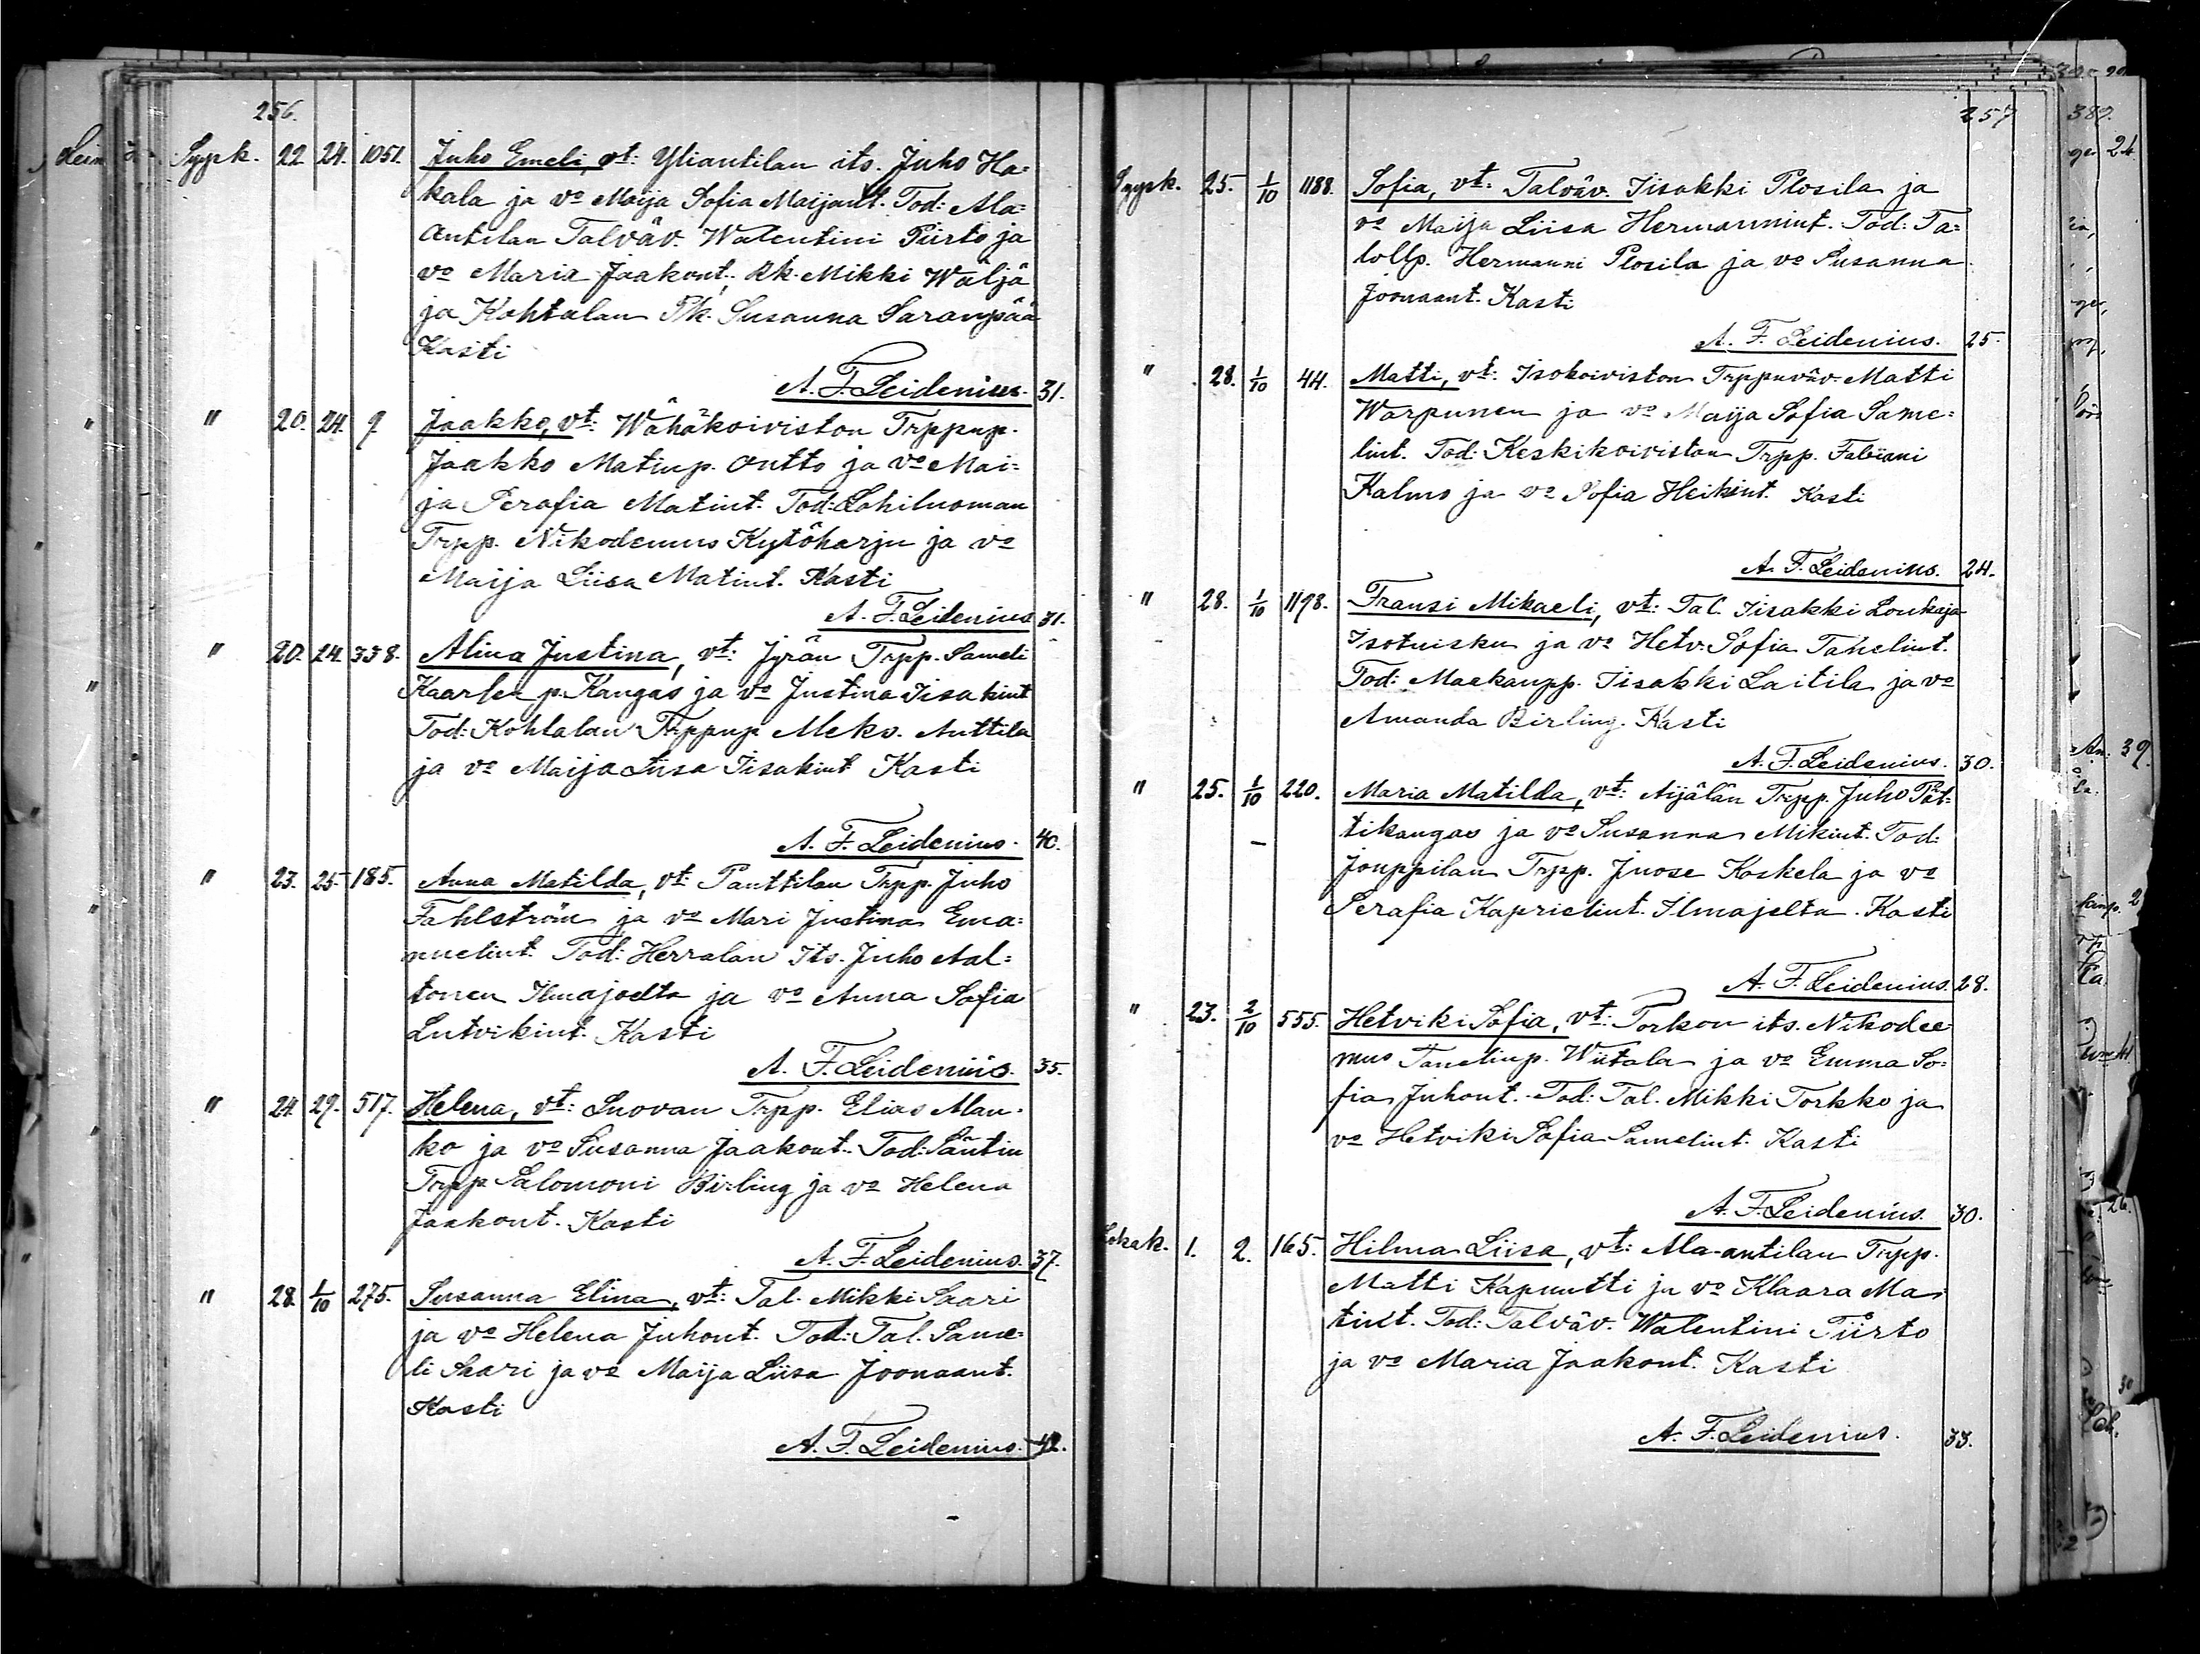 256.
Syysk. 22. 24. 1051. Juho Emeli, vt: Yliantilan its. Juho Ha=
kala ja vo Maija Sofia Maijant. Tod: Ala=
antilan Talväv. Walentini Piirto ja
vo Maria Jaakont., Rk. Mikki Wäljä
ja Kohtalan Pk. Susanna Saranpää
Kasti
A. F. Leidenius. 31.
" 20. 24. 9. Jaakko, vt: Wähäkoiviston Trppnp.
Jaakko Matinp. Antto ja vo Mai=
ja Serafia Matint. Tod: Lohiluoman
Trpp. Nikodemus Kytöharju ja vo
Maija Liisa Matint. Kasti
A. F. Leidenius 31.
" 20. 24. 338. Alina Justina, vt: Jyrän Trpp. Sameli
Kaarlen p. Kangas ja vo Justina Iisakint
Tod: Kohtalan Trppnp Aleks. Anttila
ja vo Maija Liisa Iisakint Kasti
A. F. Leidenius. 40.
" 23. 25. 185. Anna Matilda, vt: Panttilan Trpp. Juho
Fahlström ja vo Mari Justina Ema=
nuelint. Tod: Herralan Its. Juho Aal=
tonen Ilmajoelta ja vo Anna Sofia
Lutvikint. Kasti
A. F. Leidenius. 35.
" 24. 29. 517. Helena, vt: Luovan Trpp. Elias Man=
ko ja vo Susanna Jaakont. Tod: Säntin
Trpp Salomoni Birling ja vo Helena
Jaakont. Kasti
A. F. Leidenius. 37.
" 28. 1/10 275. Susanna Elina, vt: Tal. Mikki Saari
ja vo Helena Juhont. Tod: Tal. Same=
li Saari ja vo Maija Liisa Joonaant.
Kasti
A. F. Leidenius. 42.
257
Syysk. 25. 1/10 1188. Sofia, vt: Talväv. Iisakki Plosila ja
vo Maija Liisa Hermannint. Tod: Ta=
lollp. Hermanni Plosila ja vo Susanna
Joonaant. Kasti
A. F. Leidenius. 25.
" 28. 1/10 44. Matti, vt: Isokoiviston Trppnväv. Matti
Warpunen ja vo Maija Sofia Same=
lint. Tod: Keskikoiviston Trpp. Fabiani
Kalmo ja vo Sofia Heikint. Kasti
A. F. Leidenius. 24.
" 28. 1/10 1198. Fransi Mikaeli, vt: Tal. Iisakki Loukaja
Isotuisku ja vo Hetv. Sofia Tanelint.
Tod: Maakaupp. Iisakki Laitila ja vo
Amanda Birling. Kasti
A. F. Leidenius. 30.
" 25. 1/10 220. Maria Matilda, vt: Äijälän Trpp. Juho Pät=
tikangas ja vo Susanna Mikint. Tod:
Jouppilan Trpp. Juose Koskela ja vo
Serafia Kaprielint. Ilmajelta. Kasti
A. F. Leidenius. 28.
" 23. 2/10 555. Hetviki Sofia, vt: Torkon its. Nikodee
mus Tanelinp. Wiitala ja vo Emma So=
fia Juhont. Tod: Tal. Mikki Torkko ja
vo Hetviki Sofia Samelint. Kasti
A. F. Leidenius. 30.
Lokak. 1. 2. 165. Hilma Liisa, vt: Ala-antilan Trpp.
Matti Kapuutti ja vo Klaara Ma=
tint. Tod: Talväv. Walentini Piirto
ja vo Maria Jaakont. Kasti
A. F. Leidenius. 33.